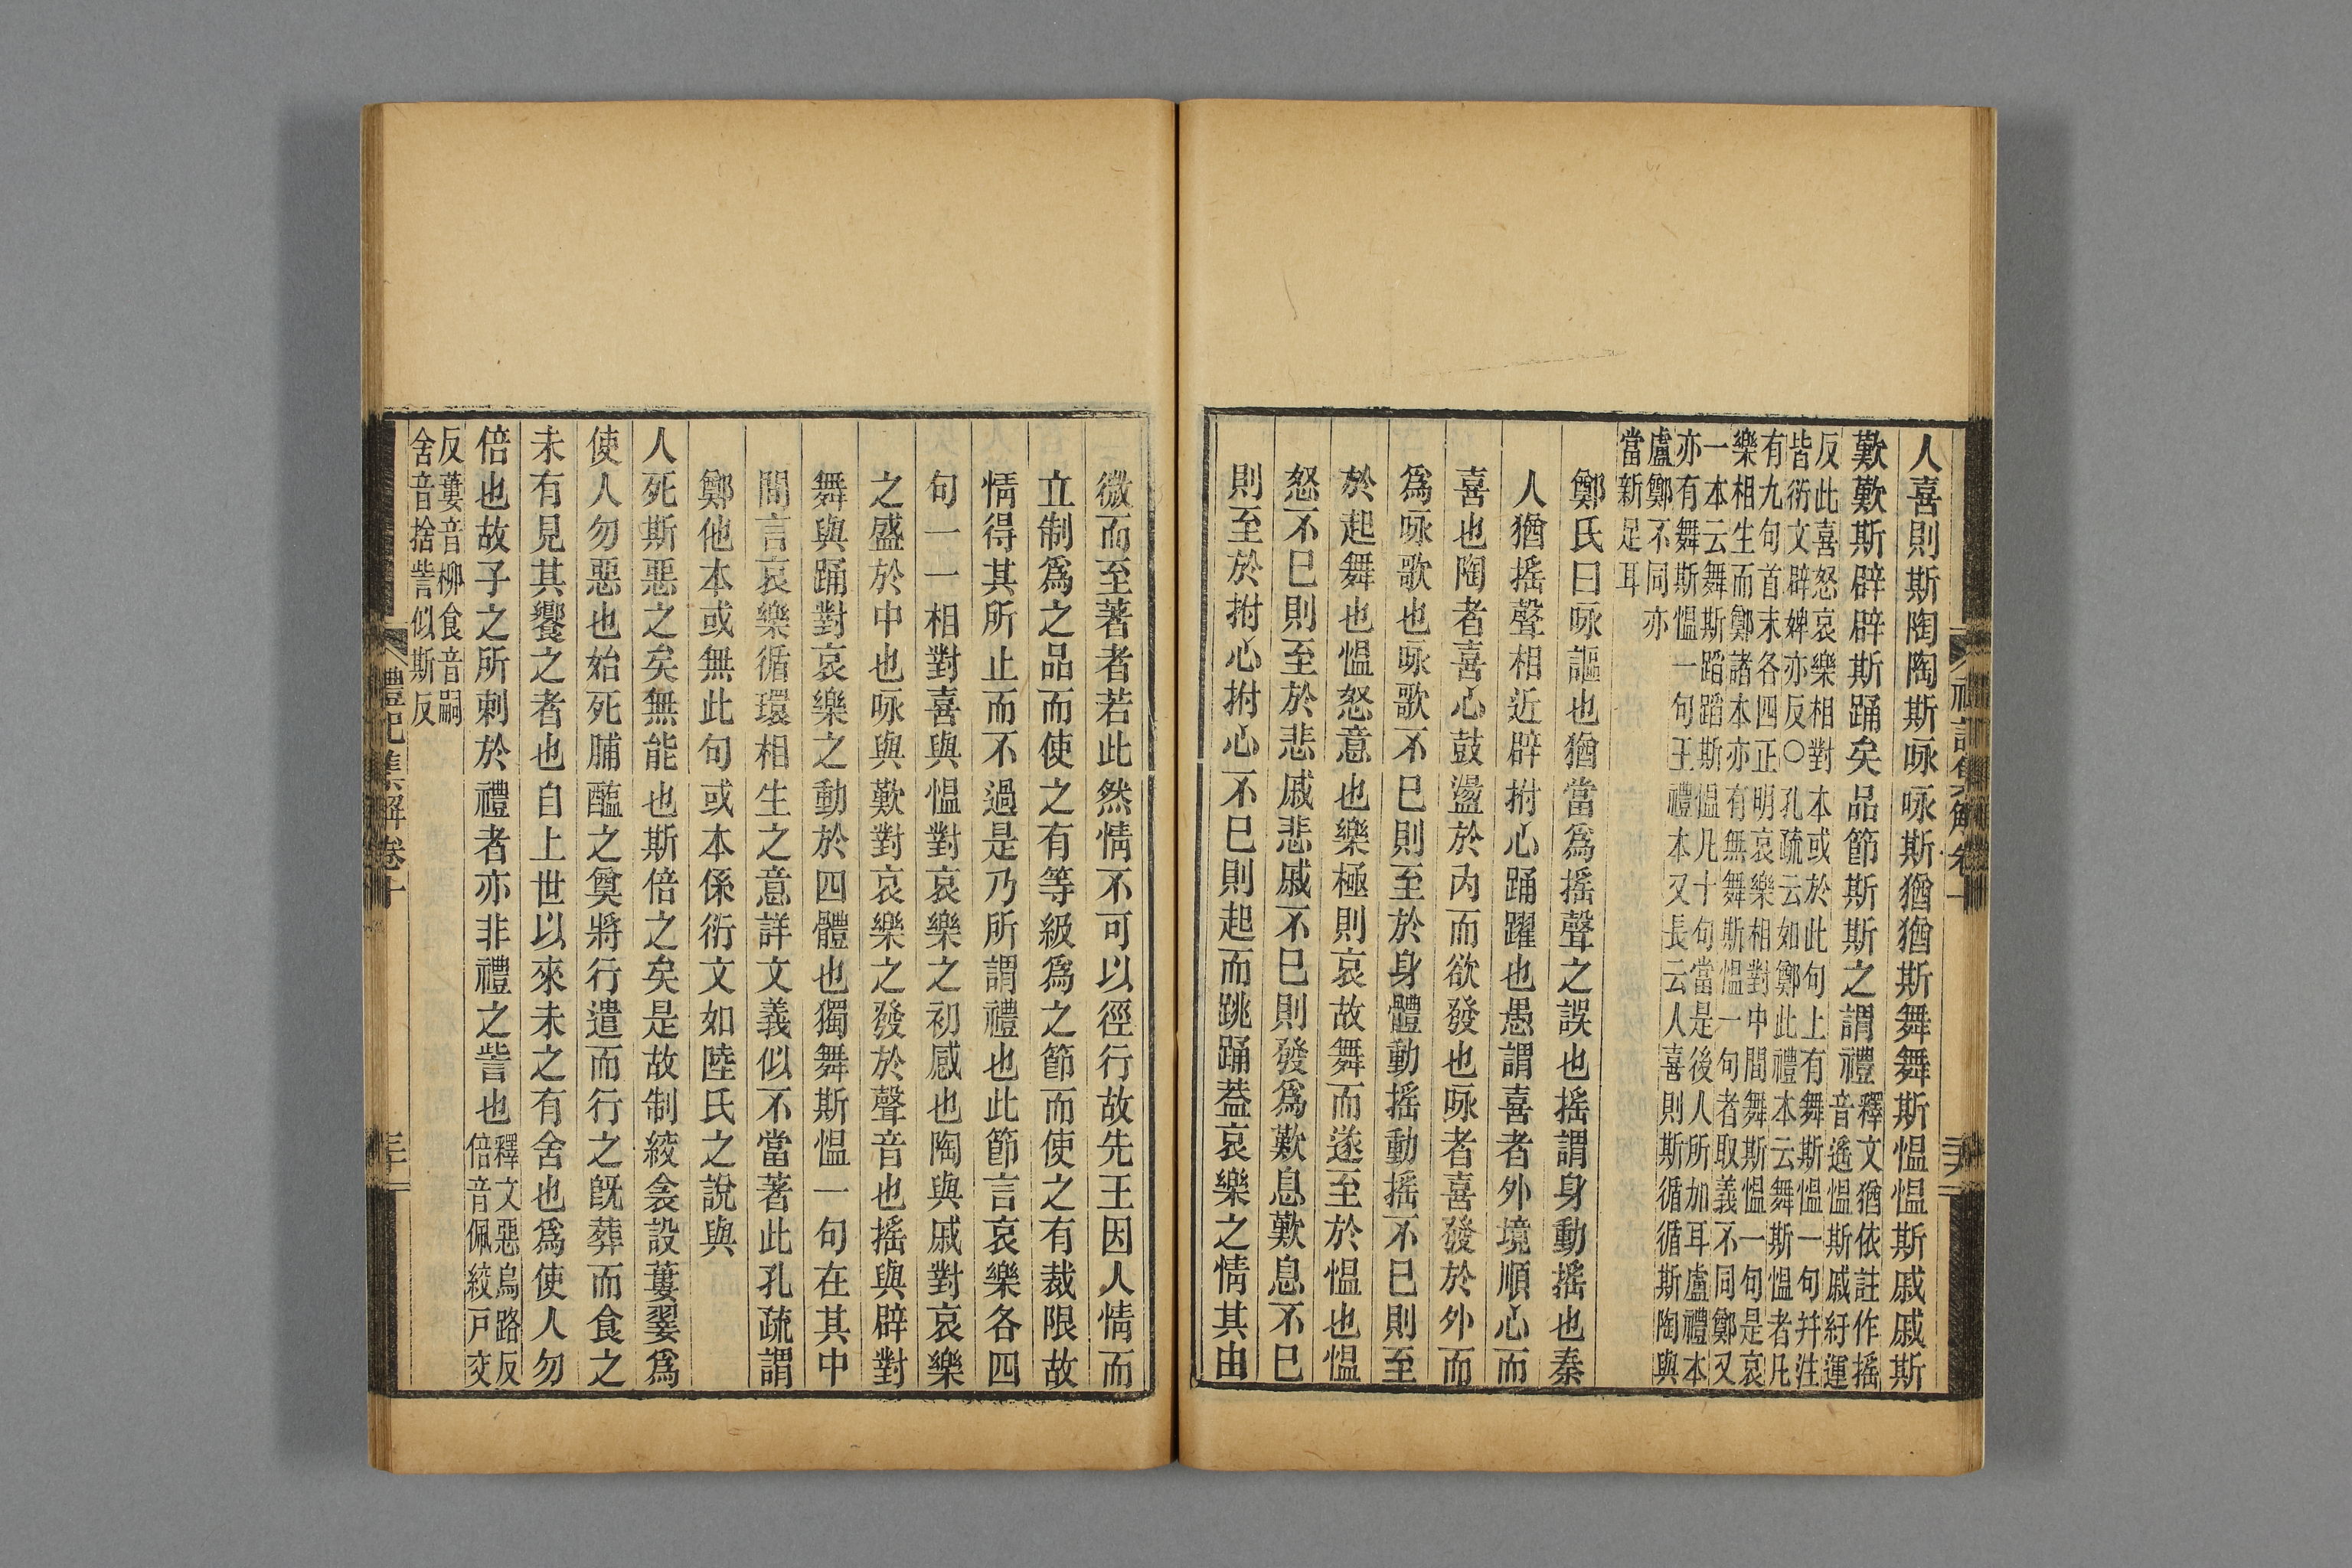 人喜則斯陶陶斯咏咏斯猶猶斯舞舞斯慍慍斯戚戚斯
歎歎斯辟辟斯踊矣品節斯斯之謂禮釋文猶依註作摇
音遙慍斯戚紆運
反此喜怒哀樂相對本或於此句上有舞斯慍一句并注
皆衍文辟婢亦反〇孔疏云如鄭此禮本云舞斯慍者凡
有九句首末各四正明哀樂相對中間舞斯慍一句是哀
樂相生而鄭諸本亦有無舞斯慍一句者取義不同鄭又
一本云舞斯蹈蹈斯慍凡十句當是後人所加耳盧禮本
亦有舞斯慍一句王禮本又長云人喜則斯循循斯陶與
盧鄭不同亦
當新足耳
鄭氏曰咏謳也猶當爲摇聲之誤也摇謂身動摇也秦
人猶摇聲相近辟拊心踊躍也愚謂喜者外境順心而
喜也陶者喜心鼓盪於内而欲發也咏者喜發於外而
爲咏歌也咏歌不已則至於身體動摇動摇不已則至
於起舞也慍怒意也樂極則哀故舞而遂至於慍也慍
怒不已則至於悲戚悲戚不已則發爲歎息歎息不已
則至於拊心拊心不已則起而跳踊葢哀樂之情其由
微而至著者若此然情不可以徑行故先王因人情而
立制爲之品而使之有等級爲之節而使之有裁限故
情得其所止而不過是乃所謂禮也此節言哀樂各四
句一一相對喜與慍對哀樂之初感也陶與戚對哀樂
之盛於中也咏與歎對哀樂之發於聲音也摇與辟對
舞與踊對哀樂之動於四體也獨舞斯慍一句在其中
間言哀樂循環相生之意詳文義似不當著此孔疏謂
鄭他本或無此句或本係衍文如陸氏之說與
人死斯惡之矣無能也斯倍之矣是故制絞衾設蔞翣爲
使人勿惡也始死脯醢之奠將行遣而行之旣葬而食之
未有見其饗之者也自上世以來未之有舍也爲使人勿
倍也故子之所刺於禮者亦非禮之訾也釋文惡烏路反
倍音佩絞戸交
反蔞音柳食音嗣
舍音捨訾似斯反
禮記集解卷十